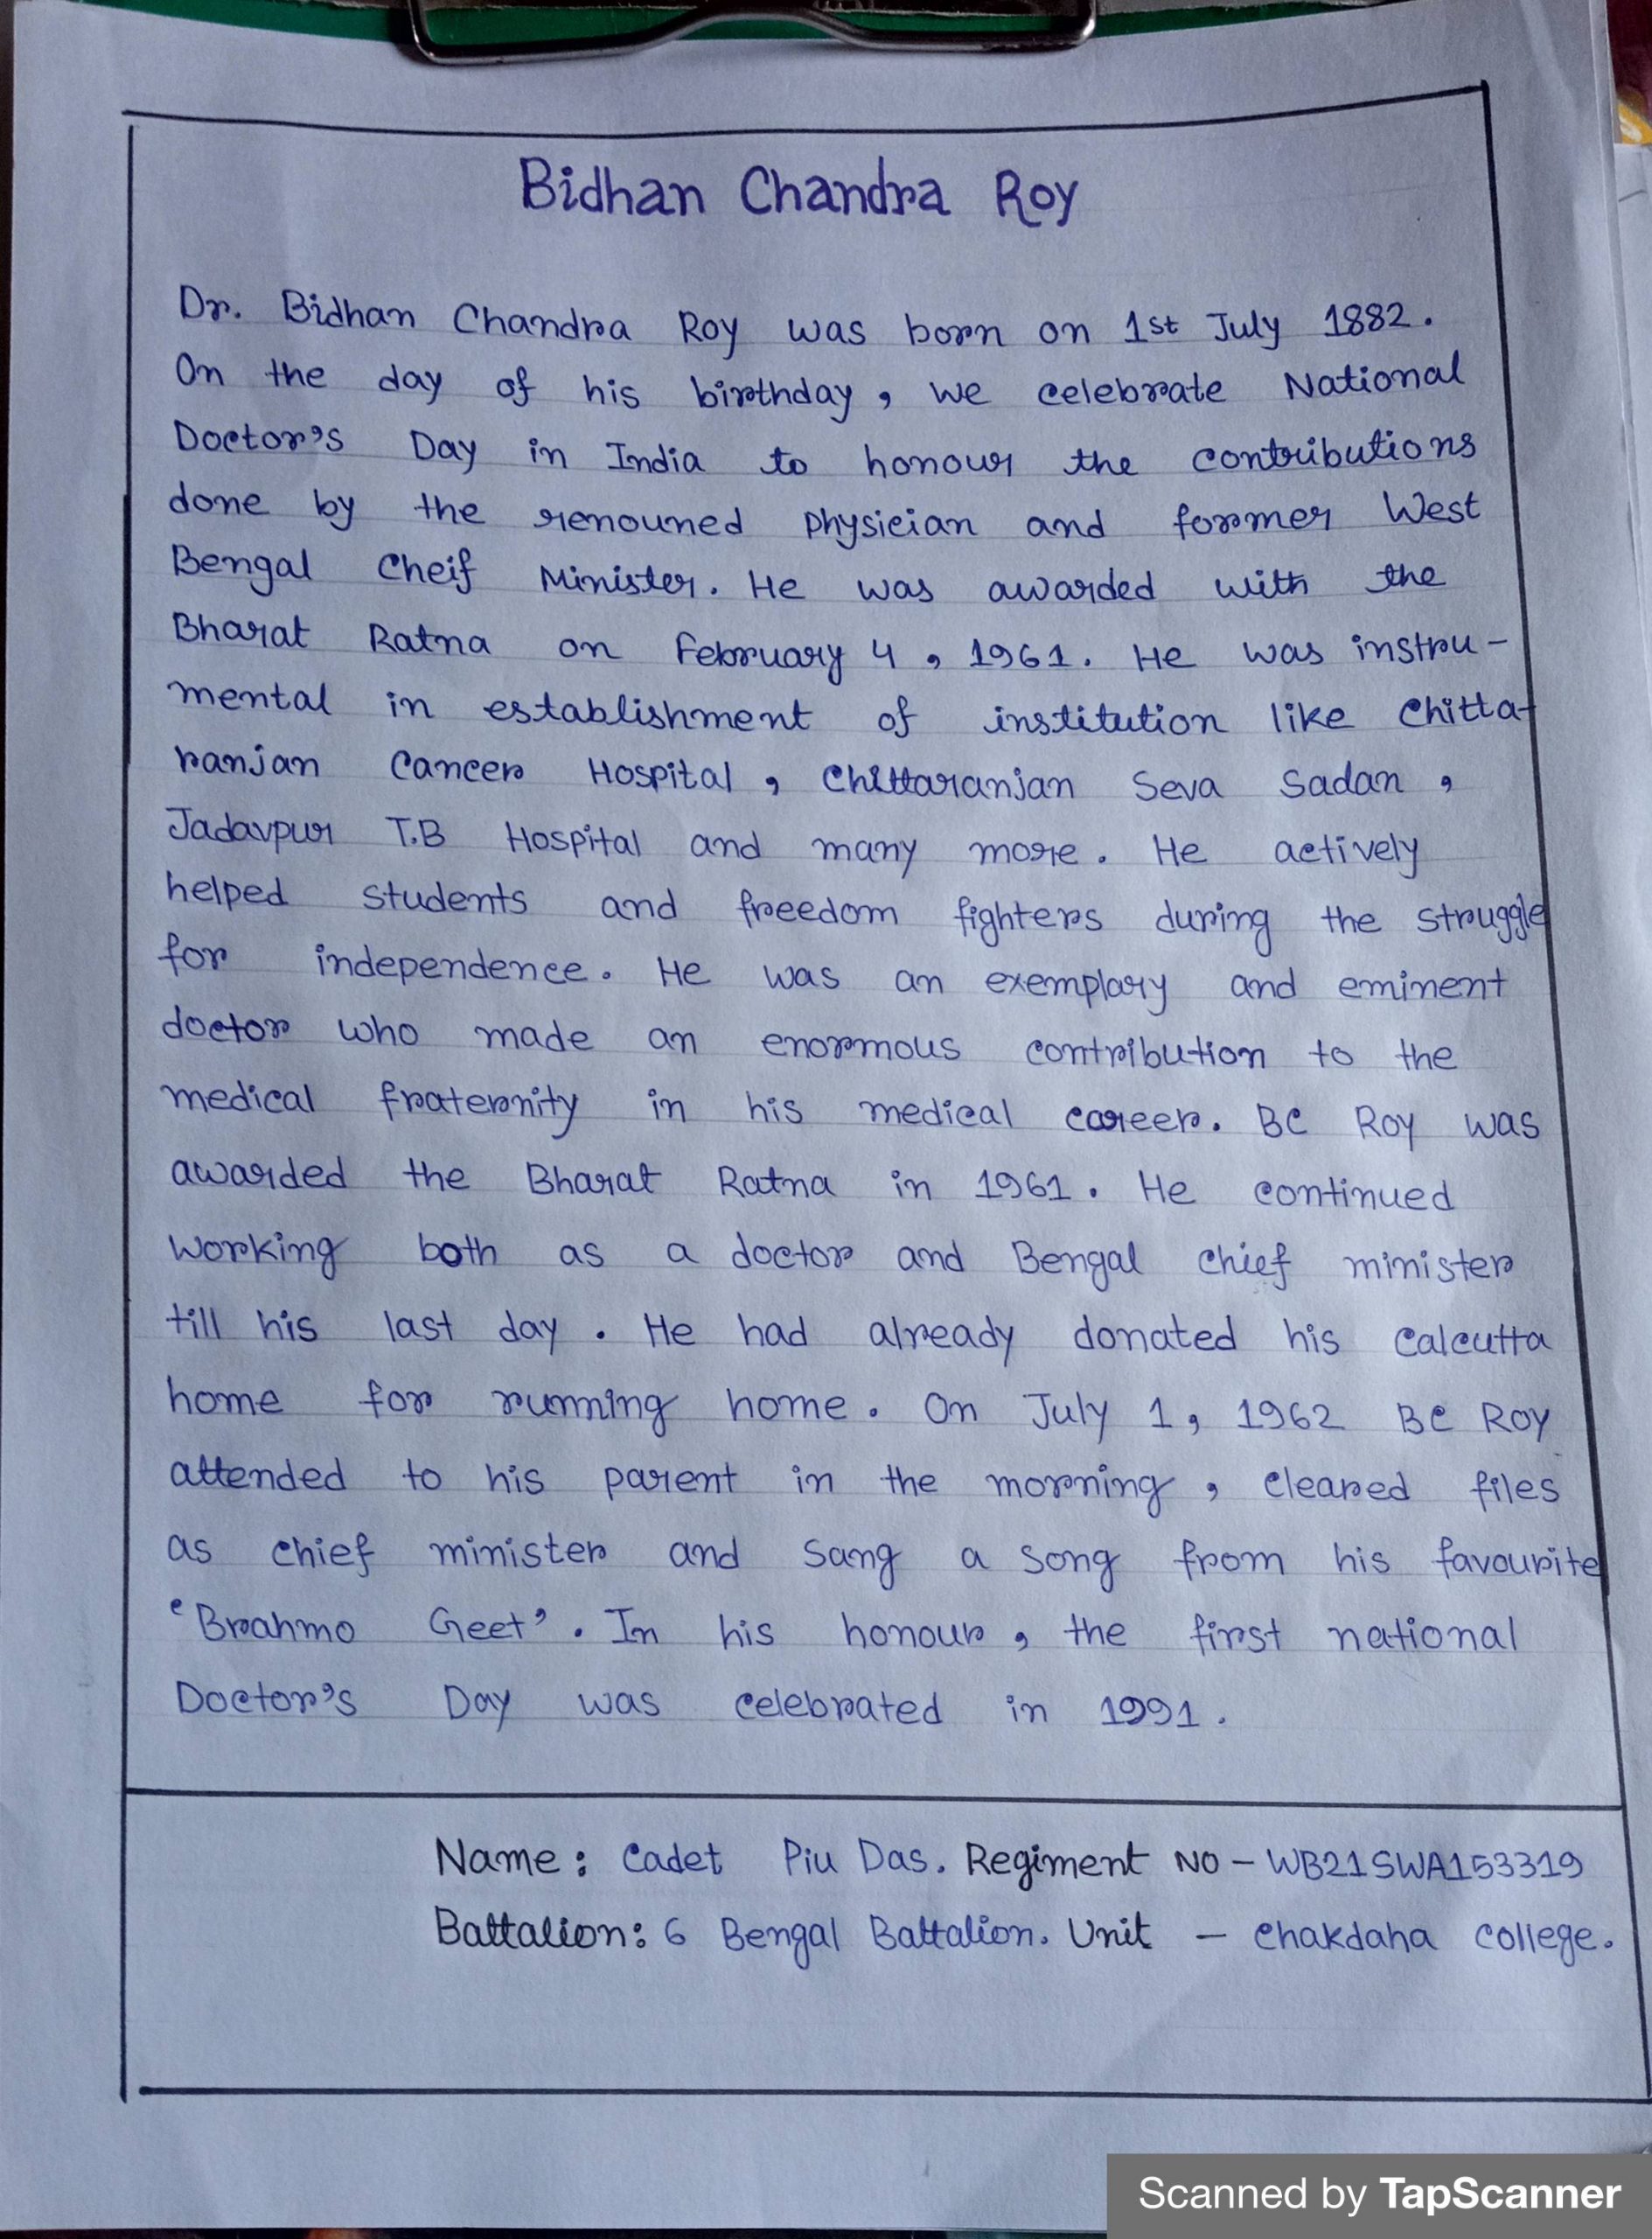 Bidhan Chandra Roy
Dr. Bidhan Chandra Roy was born on 1st July 1882.
On the day of his birthday, we celebrate National
Doctor's Day in India to honour the contributions
done by the renouned physician and former West
Bengal Cheif Minister. He was awarded with the
Bharat Ratna on February 4, 1961. He was instru-
mental in establishment of institution like Chitta-
ranjan Cancer Hospital, Chittaranjan Seva Sadan,
Jadavpur T.B Hospital and many more. He actively
helped students and freedom fighters during the struggle
for independence. He was an exemplary and eminent
doctor who made an enormous contribution to the
medical fraternity in his medical career. BC Roy was
awarded the Bharat Ratna in 1961. He continued
working both as a doctor and Bengal chief minister
till his last day. He had already donated his Calcutta
home for running home. On July 1, 1962 BC Roy
attended to his parent in the morning, cleared files
as chief minister and sang a song from his favourite
'Brahmo Geet'. In his honour, the first national
Doctor's Day was celebrated in 1991.
Name: Cadet Piu Das. Regiment NO - WB21SWA153319
Battalion: 6 Bengal Battalion. Unit - Chakdaha College.
Scanned by TapScanner